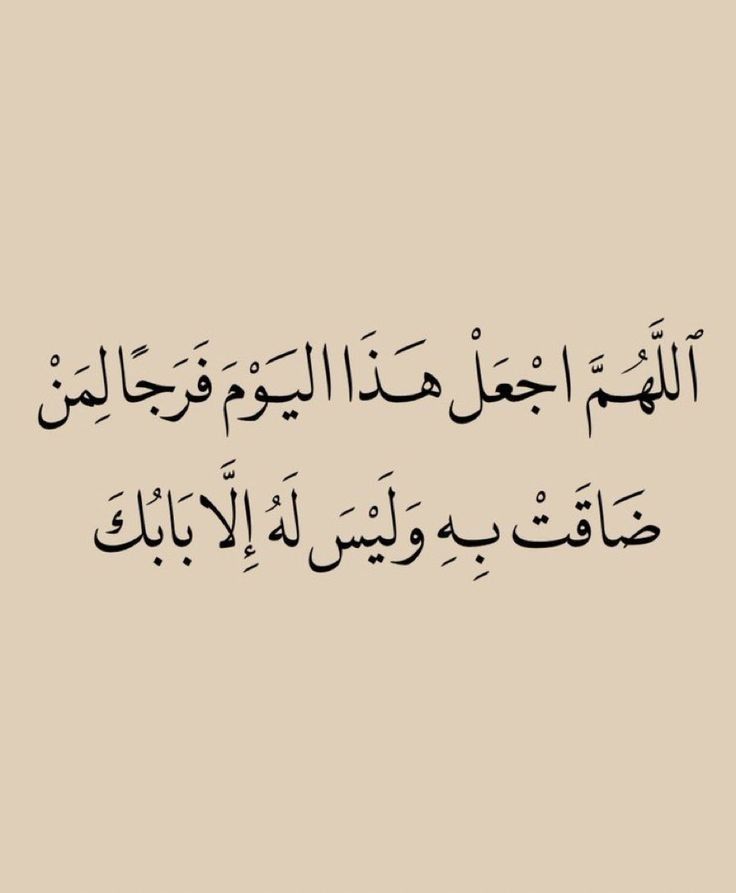 ٱللَّهُمَّ اجْعَلْ هَذَا اليَوْمَ فَرَجًا لِمَنْ
ضَاقَتْ بِهِ وَلَيْسَ لَهُ إِلَّا بَابُكَ